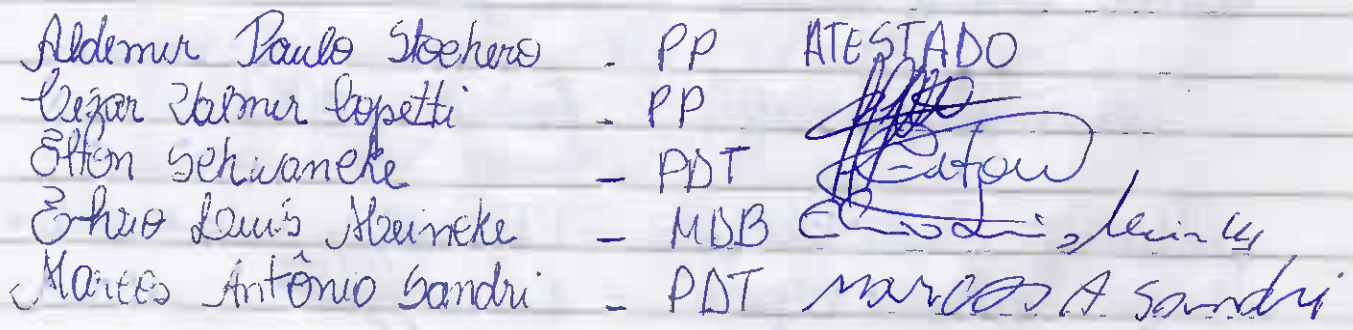 Aldemir Paulo Stochero - PP ATESTADO
Cezar Valmir Copetti - PP
Elton Schwaneke - PDT Elton
Enio Luis Meineke - MDB Enio Luis Meineke
Marcos Antônio Sandri - PDT Marcos A. Sandri